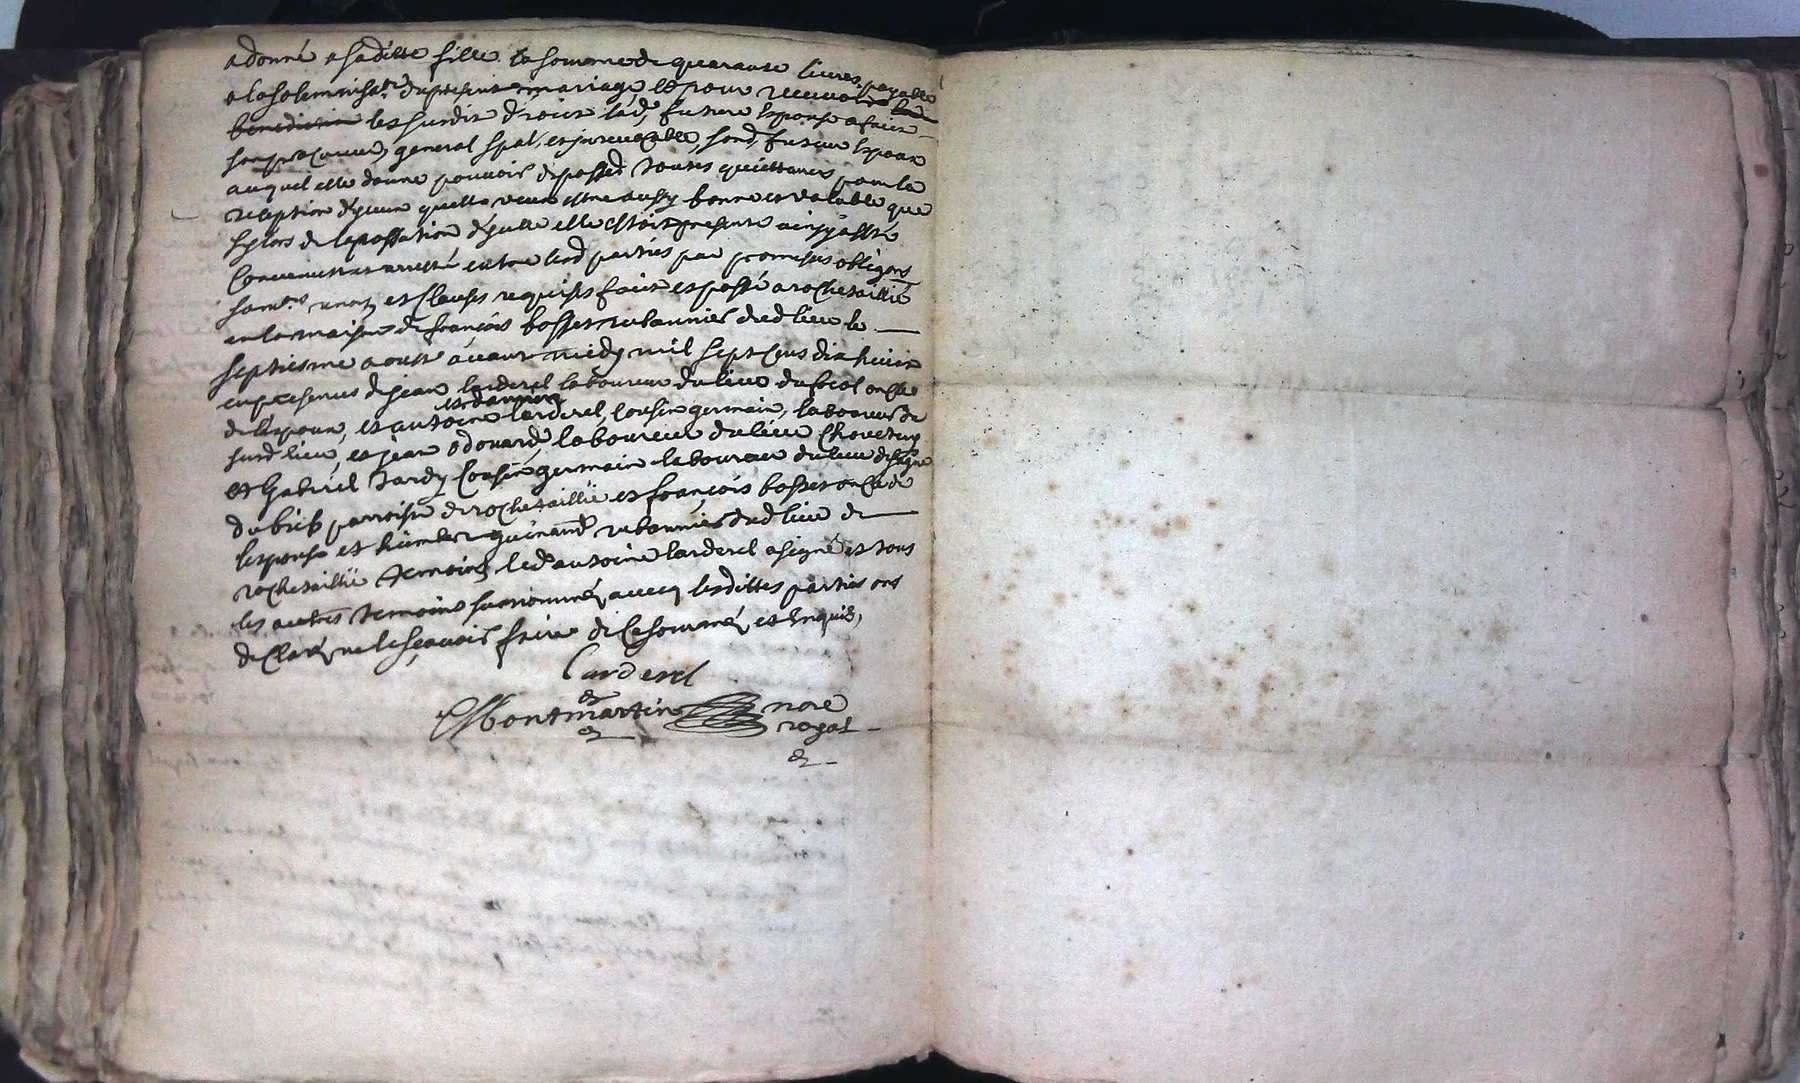 a donné a saditte fille la somme de quarante livres payable
a la solemnisa.on du present mariage, et pour recevoir la
benediction les susdits droits lad. future espouse a fait
son procureur, general spal, et irrevocable, sond. futur espoux
auquel elle donne pouvoir de passer toutes quittances pour la
reception d'yceux quelle veut estre aussy bonne et valable que
sy lors de la passation d'ycelle elle estoit presente ainsy a esté
convenu et arresté entre lesd parties par promesses obligaons
et clauses requises fait et passé a rochetaillié
en la maison de françois bosset rubannier dud lieu le
septiesme aoust avant midy mil sept cens dix huict
en presences de jean larderel laboureur du lieu du oncle
de l'espoux, et antoine larderel, cousin germain, laboureur de
surd lieu, et jean odouard, laboureur du lieu
et Gabriel tardy cousin germain laboureur du lieu de
du bief parroisse de rochetaillié et françois bosset oncle de
l'espouse et rubannier dud lieu de
rochetaillié temoins led antoine larderel a signé et tous
les autres temoins surnommés avecq lesdittes parties ont
declaré ne le sçavoir faire de ce sommés et enquis,
Larderel
Montmartin nore
royal